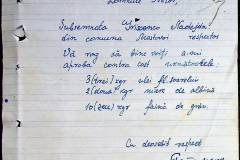 Domnule Primar,
Subsemnata Nadejda
din comuna Mostovoi respectos
Vă rog să bine voiți a-mi
aproba contra cost următoarele
3 (trei) kgr ulei fl. soarelui
2 (două) kgr miere de albină
10 (zece) kgr faină de grâu.
Cu deosebit respect